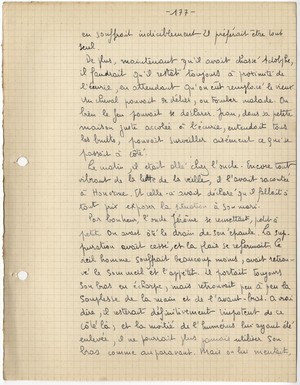 - 177 -
en souffrait indiciblement. Il préférait être tout
seul.
De plus, maintenant qu'il avait chassé Adolphe,
il faudrait qu'il restât toujours à proximité de
l'écurie, en attendant qu'on eût remplacé le vieux
Un cheval pouvait se délier, ou tomber malade. Ou
bien le feu pouvait se déclarer. Jean, dans sa petite
maison juste accotée à l'écurie, entendant tous
les bruits, pouvait surveiller aisément ce qui se
passait à côté.
Le matin, il était allé chez l'oncle. Encore tout
vibrant de la lutte de la veille, il l'avait racontée
à Honorine. Et elle avait déclaré qu'il fallait à
tout prix exposer la situation à son mari.
Par bonheur, l'oncle Jérôme se remettait, petit à
petit. On avait ôté le drain de son épaule. La sup-
puration avait cessé, et la plaie se refermait. Le
vieil homme souffrait beaucoup moins, avait retrou-
vé le sommeil et l'appétit. Il portait toujours
son bras en écharpe, mais retrouvait peu à peu la
souplesse de la main et de l'avant-bras. A vrai
dire, il resterait définitivement impotent de ce
côté là; et la moitié de l'humérus lui ayant été
enlevée, il ne pourrait plus jamais utiliser son
bras comme auparavant. Mais